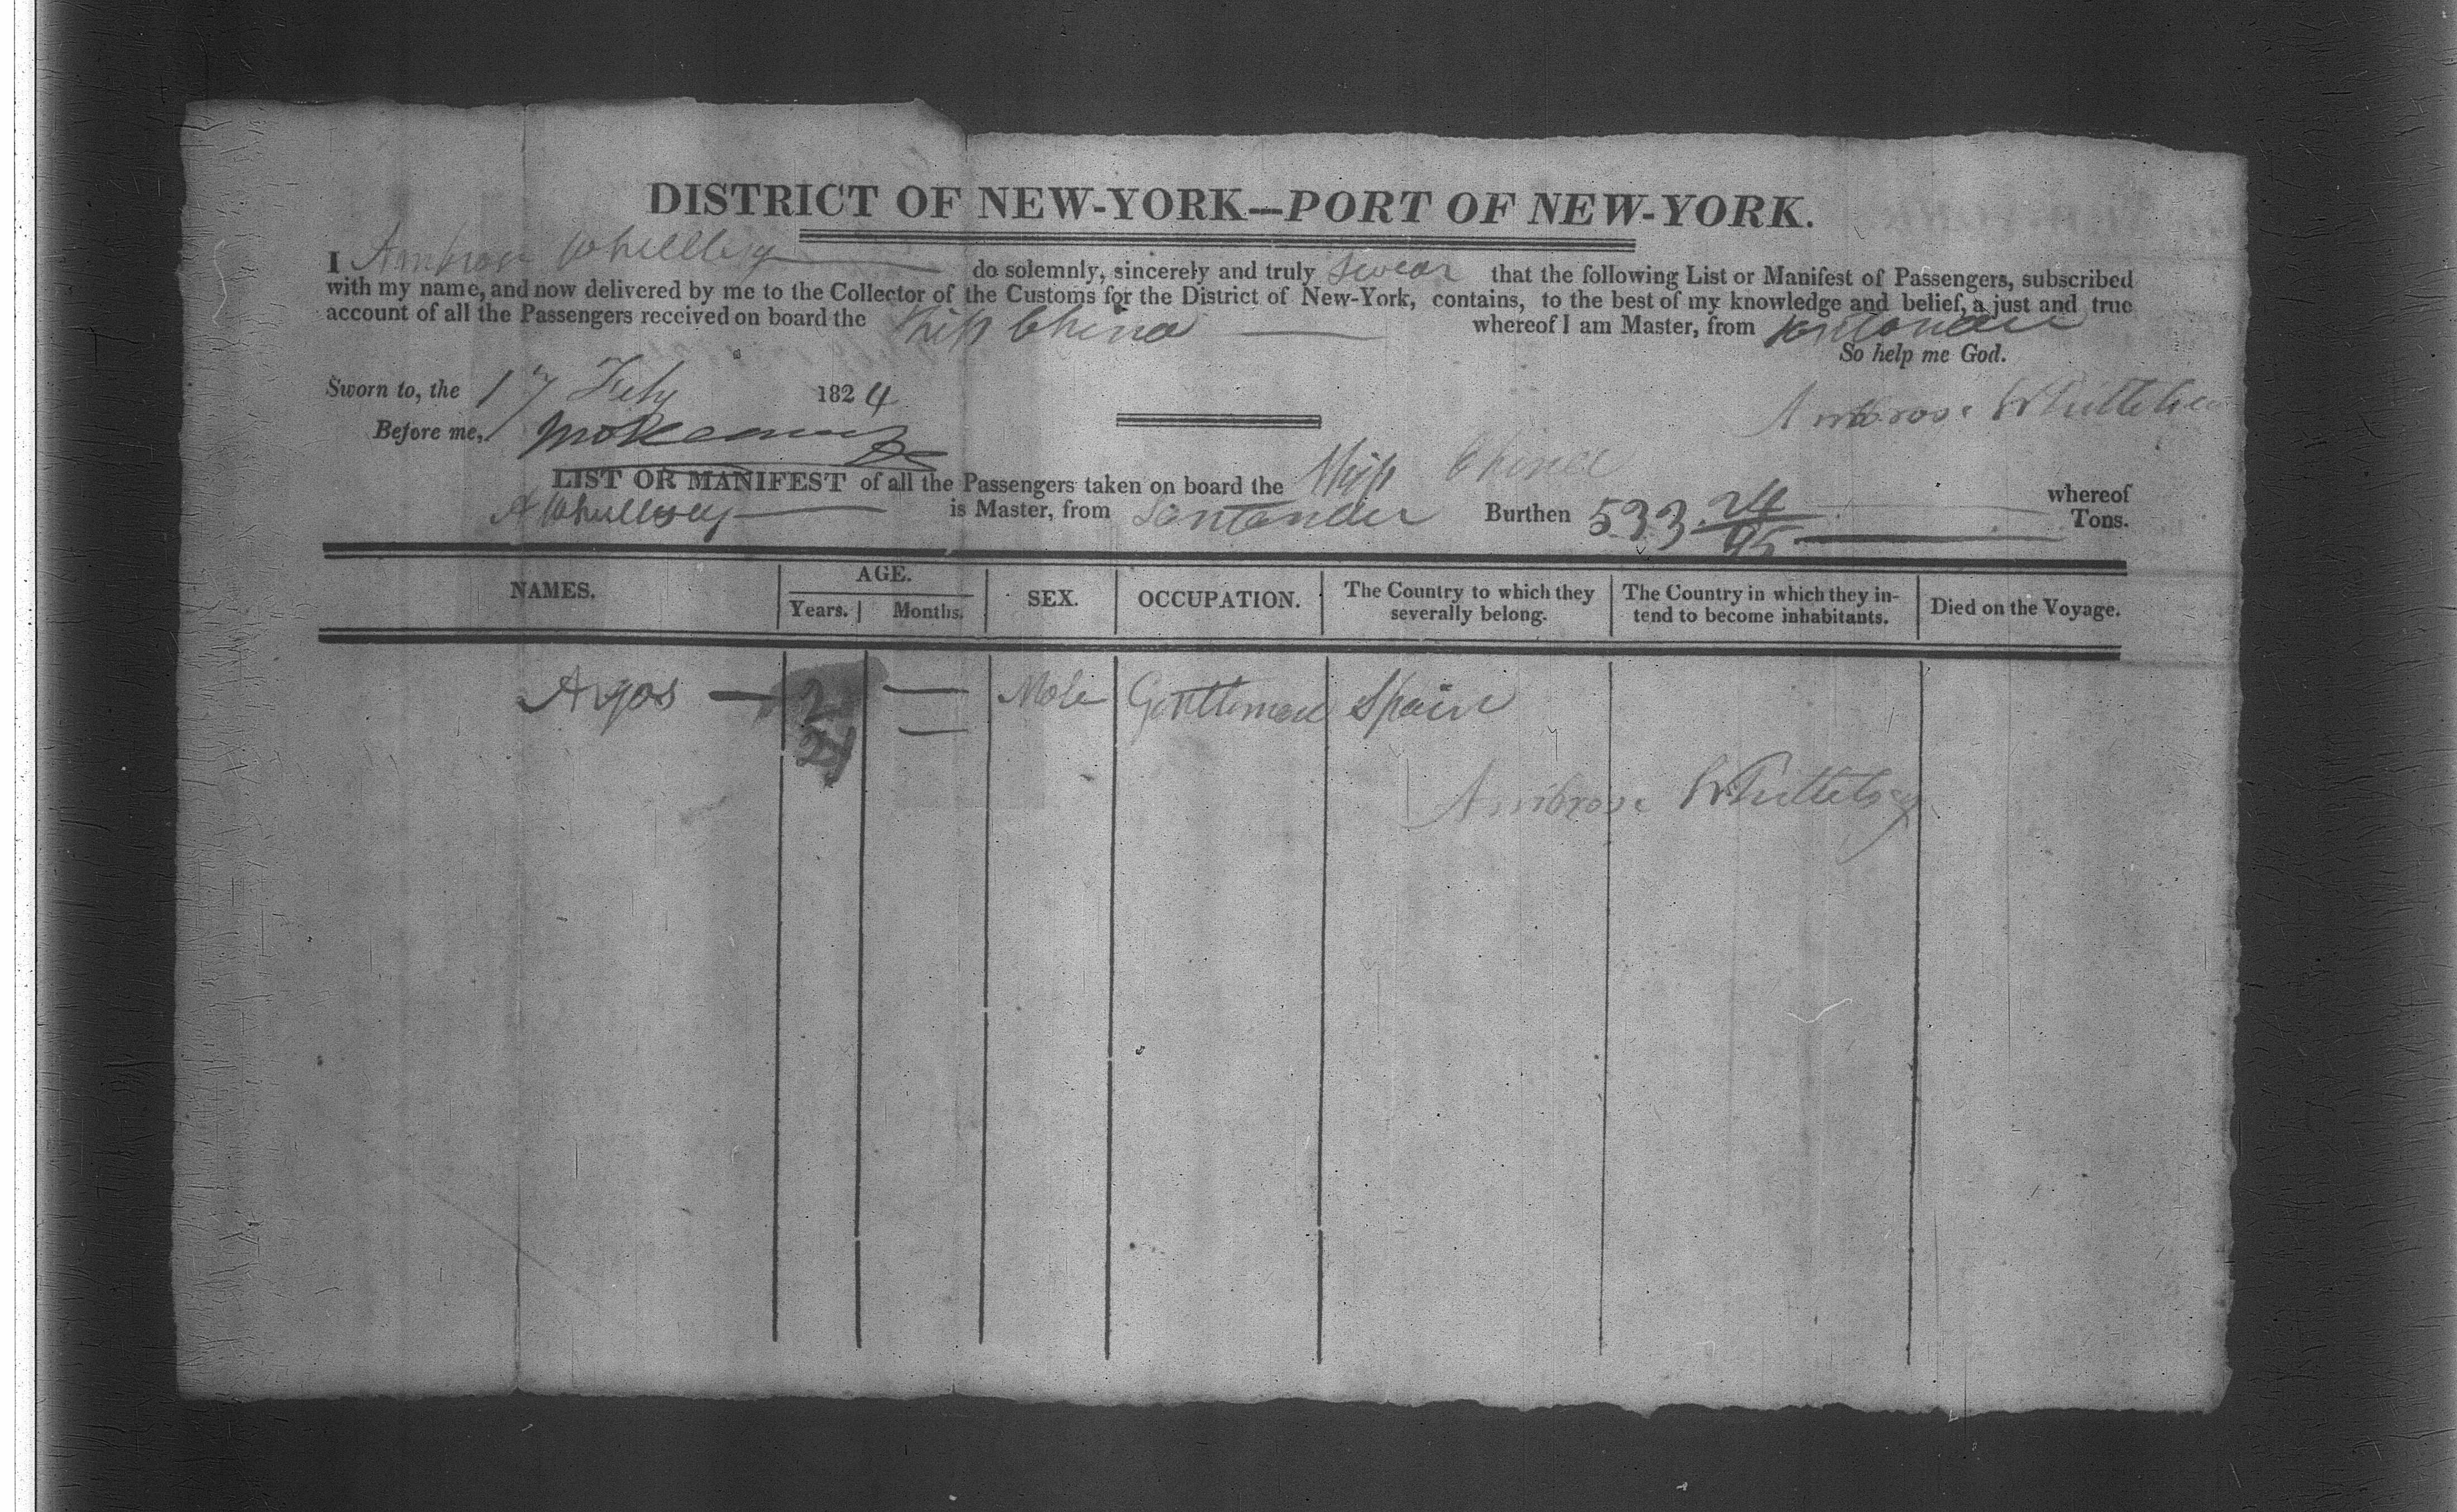 DISTRICT OF NEW-YORK—PORT OF NEW-YORK.
I Ambrose Whittlesey do solemnly, sincerely and truly swear that the following List or Manifest of Passengers, subscribed
with my name, and now delivered by me to the Collector of the Customs for the District of New-York, contains, to the best of my knowledge and belief, a just and true
account of all the Passengers received on board the Ship China whereof I am Master, from Santander
So help me God.
Sworn to, the 17 Feby 1824
Ambrose Whittlesey
Before me,
LIST OR MANIFEST of all the Passengers taken on board the Ship China whereof
A Whittlesey is Master, from Santander Burthen 533 24/95 Tons.
NAMES. AGE. Years. Months. SEX. OCCUPATION. The Country to which they severally belong. The Country in which they intend to become inhabitants. Died on the Voyage.
— Male Gentleman Spain
Ambrose Whittlesey